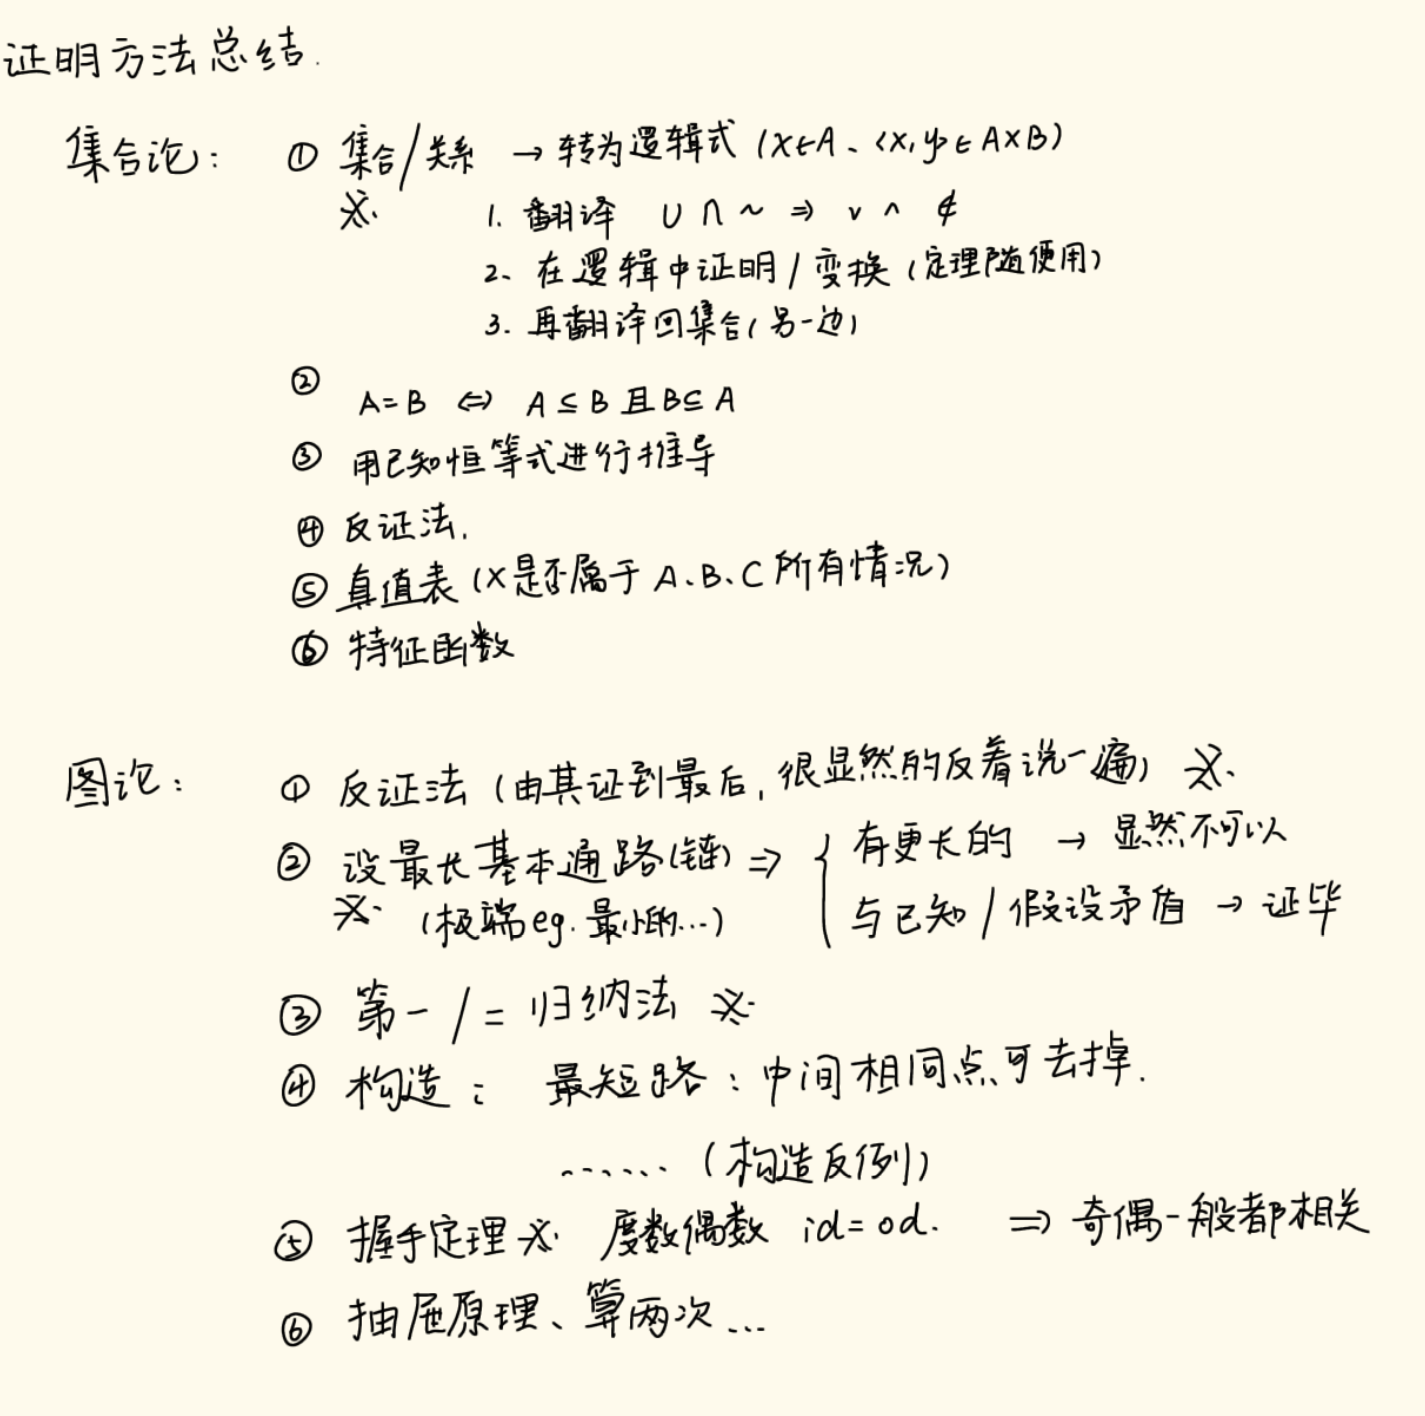 证明方法总结.
集合论: ① 集合/关系 → 转为逻辑式 (x∈A、<x,y>∈A×B)
※ 1. 翻译 ∪ ∩ ~ ⇒ ∨ ∧ ∉
2、在逻辑中证明/变换 (定理随便用)
3. 再翻译回集合(另一边)
② A=B ⇔ A⊆B 且 B⊆A
③ 用已知恒等式进行推导
④ 反证法.
⑤ 真值表 (x是否属于 A、B、C 所有情况)
⑥ 特征函数
图论: ① 反证法 (由其证到最后, 很显然的反着说一遍) ※
② 设最长基本通路(链) ⇒ { 有更长的 → 显然不可以
※ (极端eg. 最小的...) 与已知/假设矛盾 → 证毕
③ 第一/二归纳法 ※
④ 构造: 最短路: 中间相同点可去掉.
...... (构造反例)
⑤ 握手定理 ※ 度数偶数 id=od. ⇒ 奇偶一般都相关
⑥ 抽屉原理、算两次...